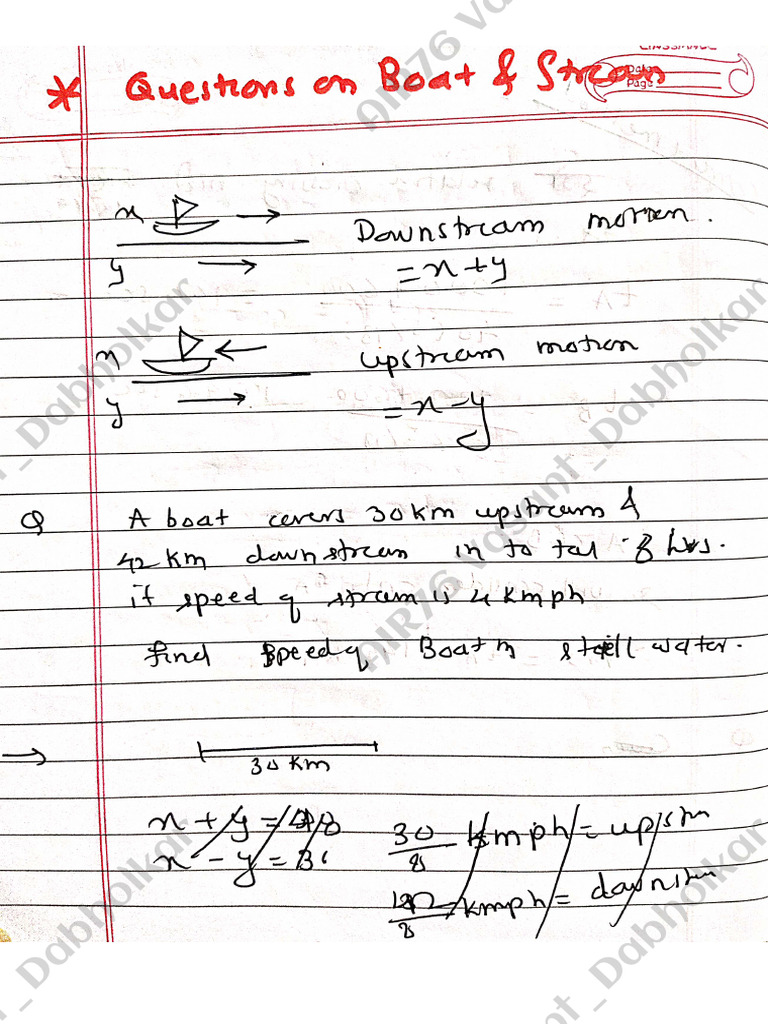 CLASSMATE
Date
Page
* Questions on Boat & Stream
x →
Downstream motion.
y →
= x + y
x ←
upstream motion
y →
= x - y
Q A boat covers 30 km upstream &
42 km downstream in total 8 hrs.
if speed of stream is 4 kmph
find speed of Boat in still water.
→
30 km
x + y =
30/8 kmph = upstm
x - y =
kmph = downstm
AIR76 Vasant_Dabholkar